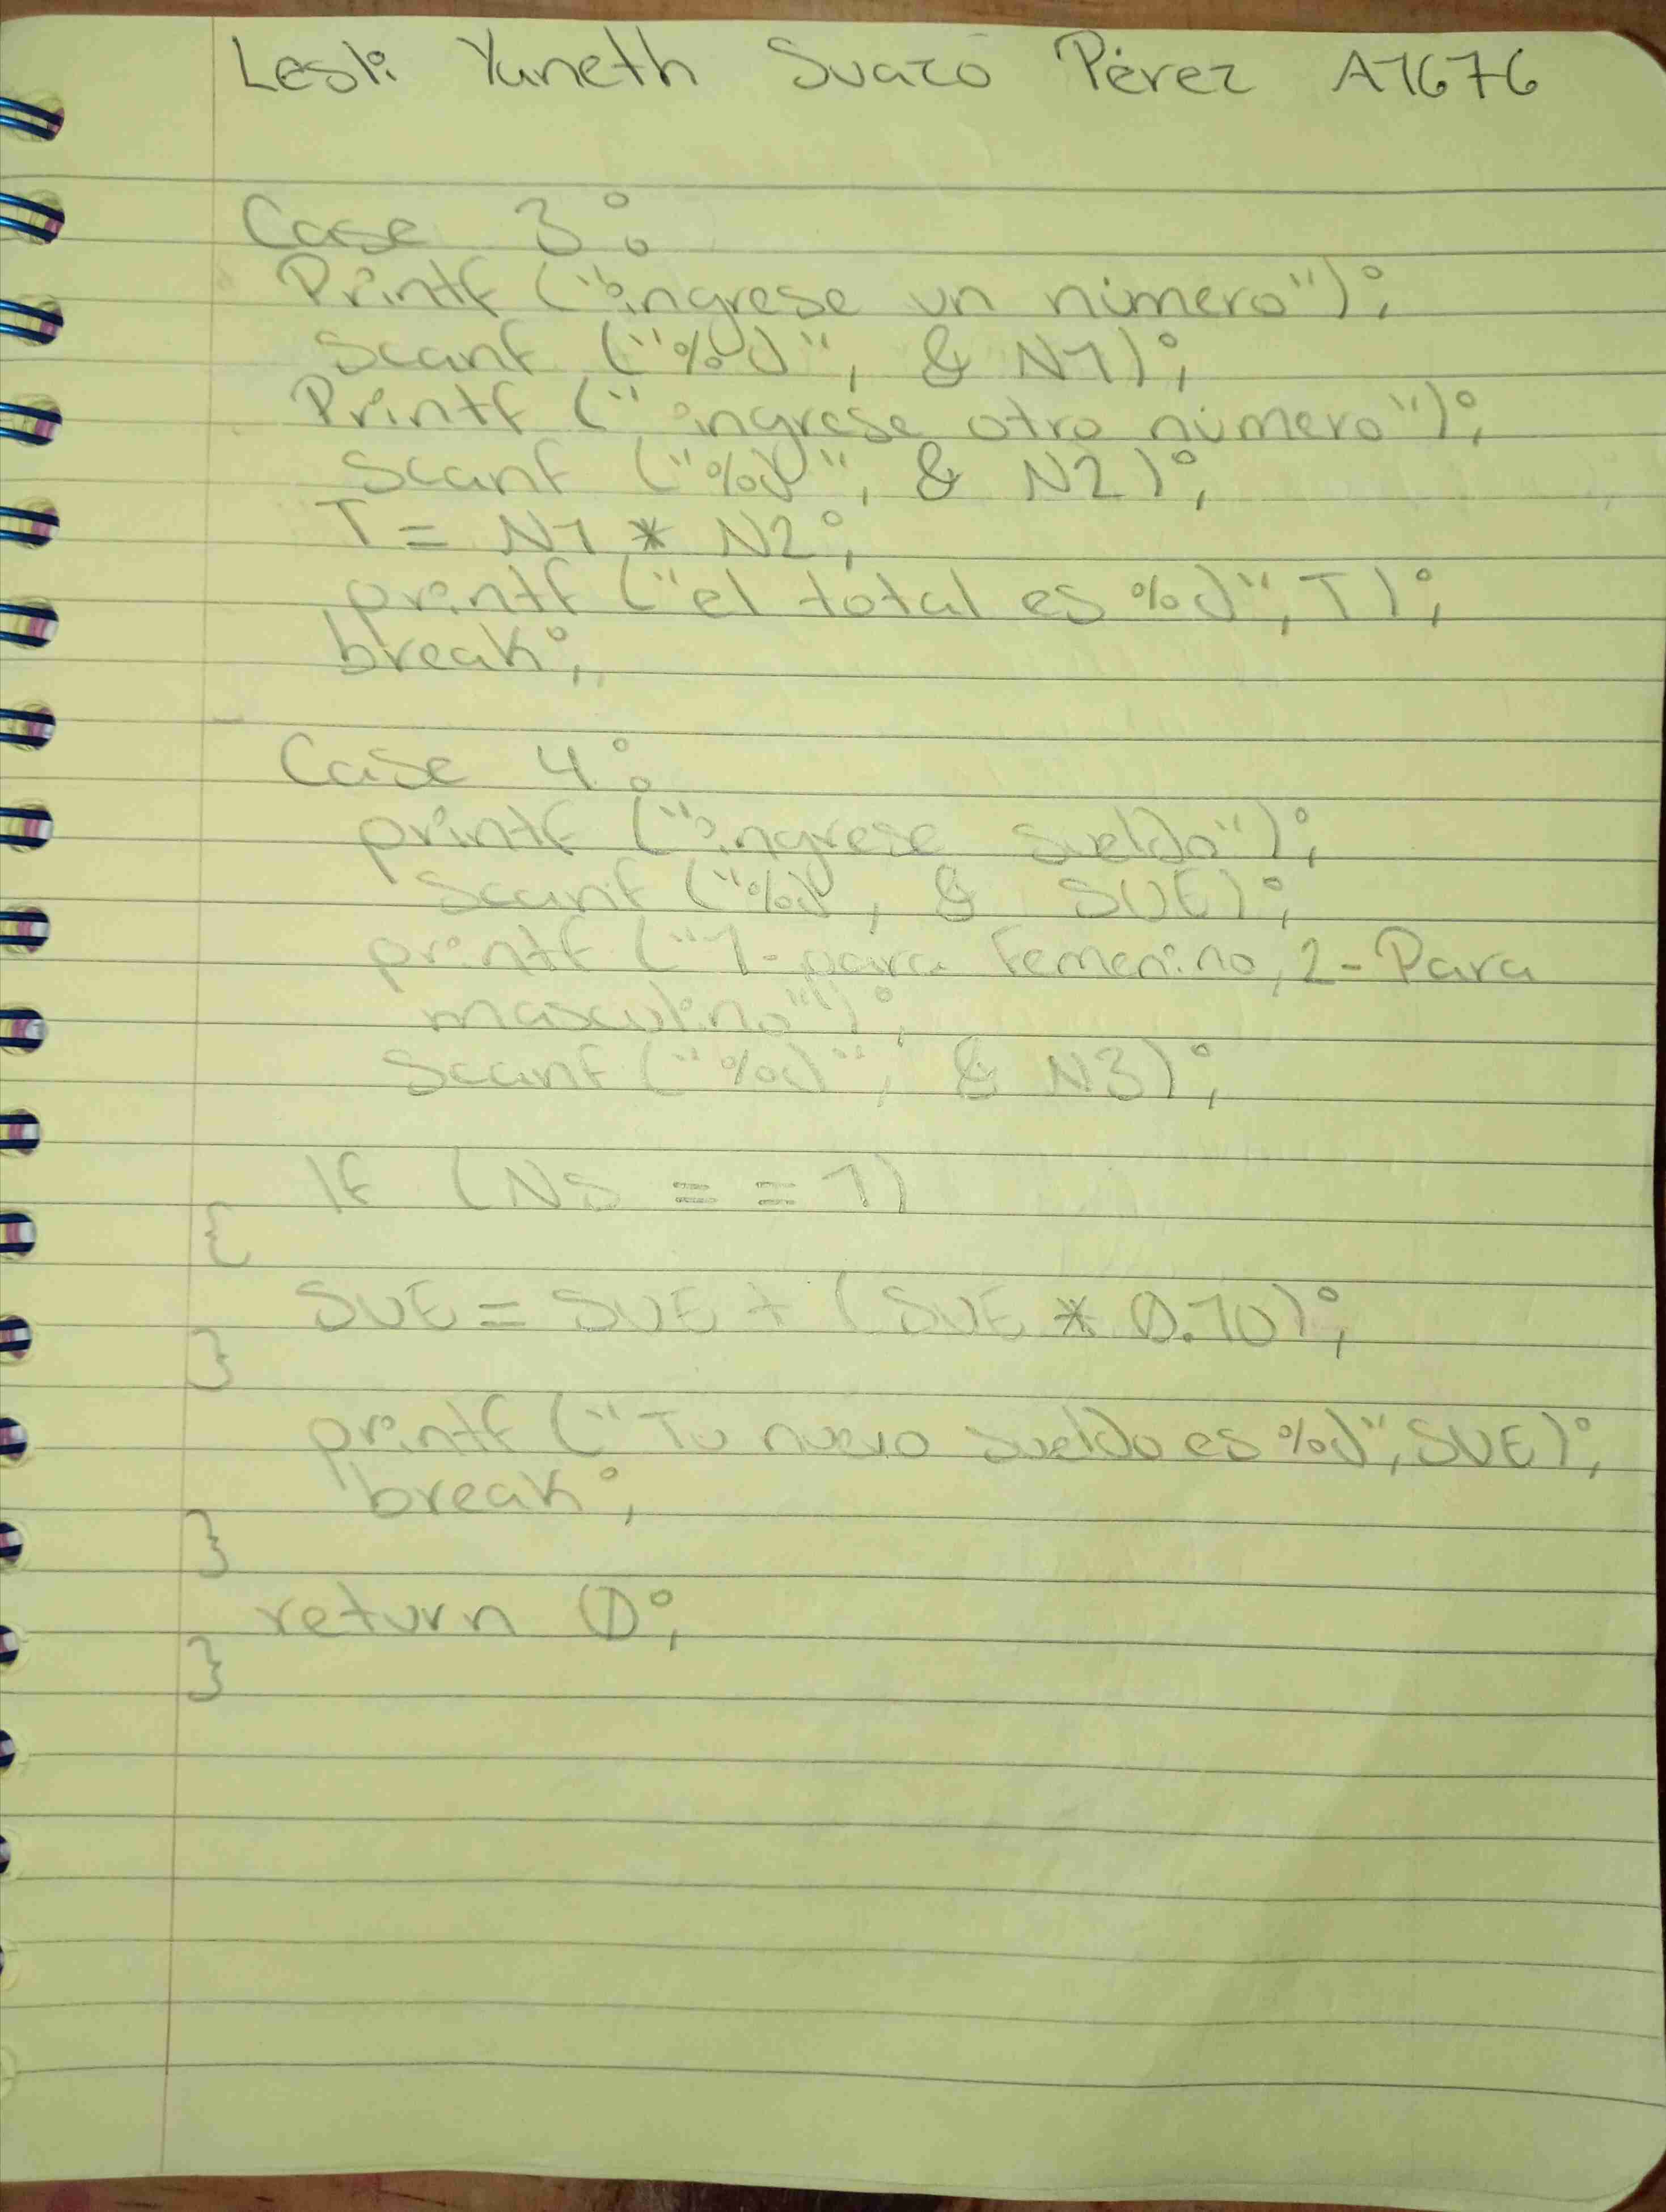 Lesli Yaneth Suazo Pérez A1676
Case 3:
Printf ("ingrese un número");
Scanf ("%d", & N1);
Printf ("ingrese otro número");
Scanf ("%d", & N2);
T = N1 * N2;
printf ("el total es %d", T);
break;
Case 4:
printf ("ingrese sueldo");
Scanf ("%d, & SUE);
printf ("1-para Femenino, 2-Para
masculino");
Scanf ("%d", & N3);
If (NS = = 1)
{
SUE = SUE + (SUE * 0.10);
}
printf ("Tu nuevo sueldo es %d", SUE);
break;
}
return 0;
}